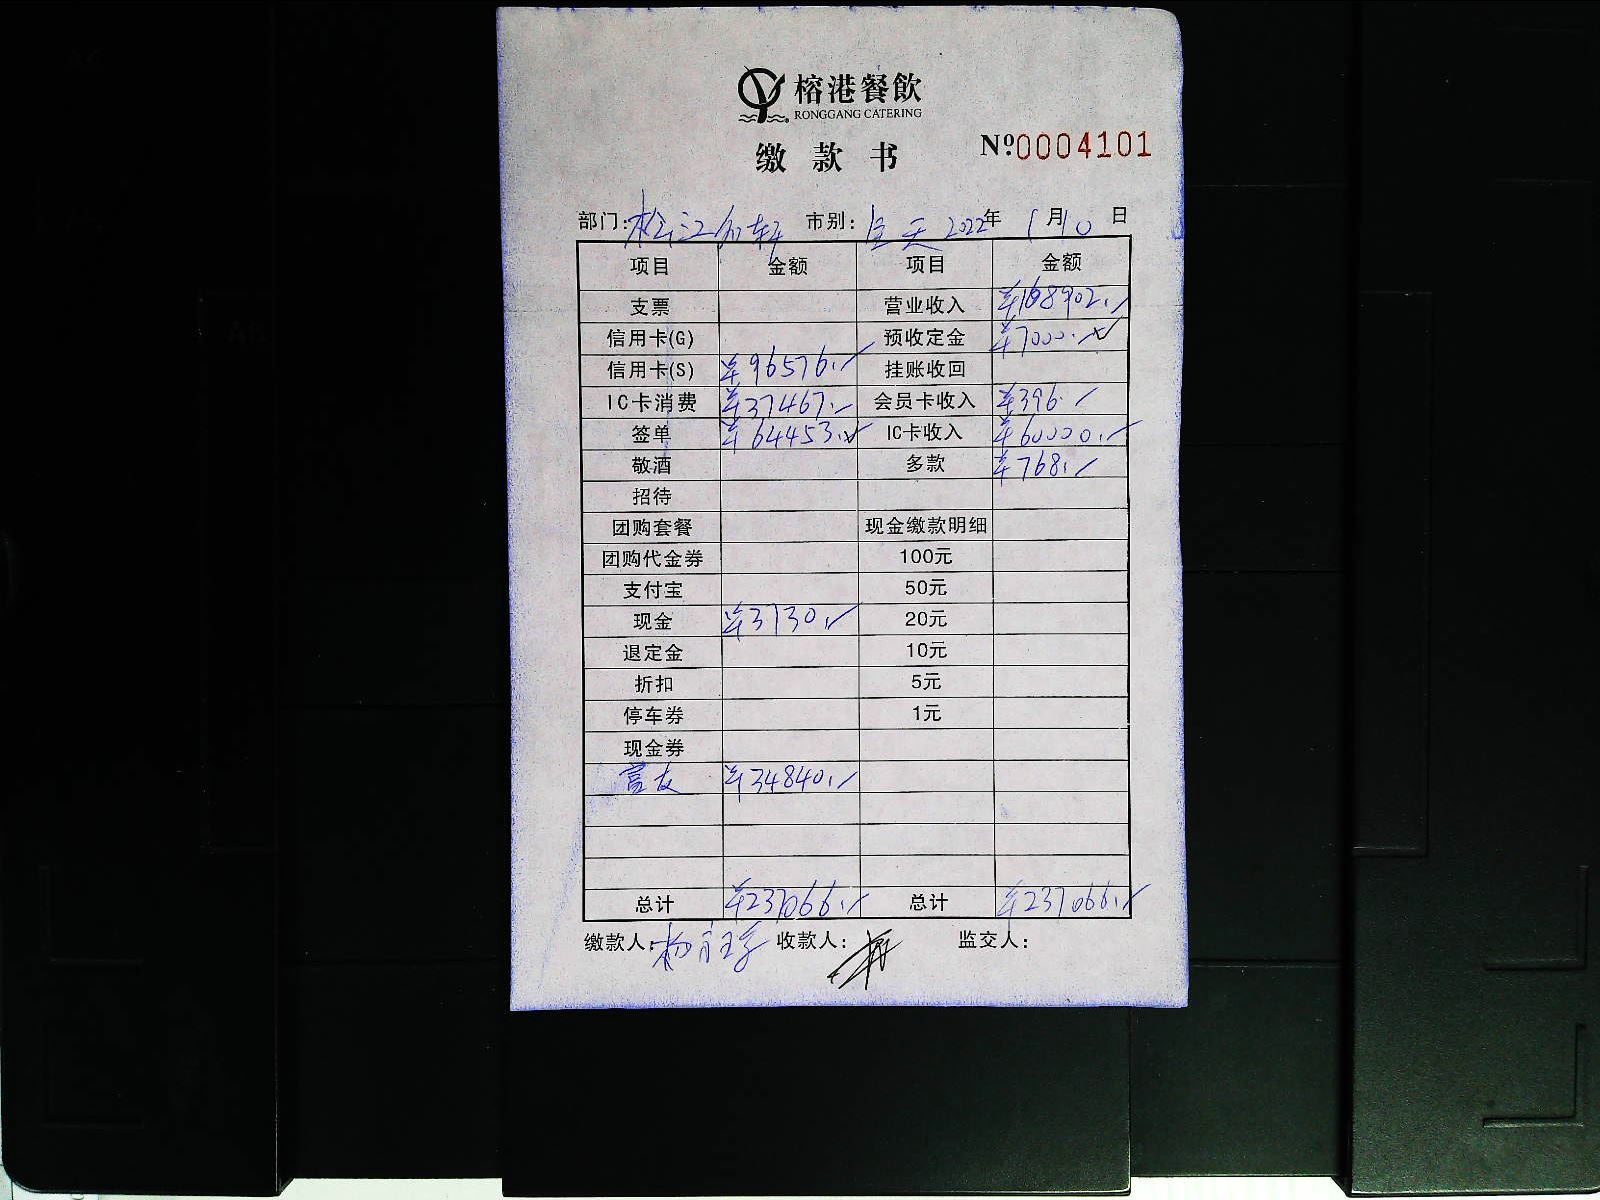 榕港餐飲
RONGGANG CATERING
缴款书 №0004101
部门: 松江名轩 市别: 全天 2022年 1月10日
项目 金额 项目 金额
支票 营业收入 ¥168902.
信用卡(G) 预收定金 ¥7000.
信用卡(S) ¥96576. 挂账收回
IC卡消费 ¥37467. 会员卡收入 ¥396.
签单 ¥64453. IC卡收入 ¥60000.
敬酒 多款 ¥768.
招待
团购套餐 现金缴款明细
团购代金券 100元
支付宝 50元
现金 ¥3730. 20元
退定金 10元
折扣 5元
停车券 1元
现金券
富友 ¥34840.
总计 ¥237066. 总计 ¥237066.
缴款人: 杨 收款人: 监交人: